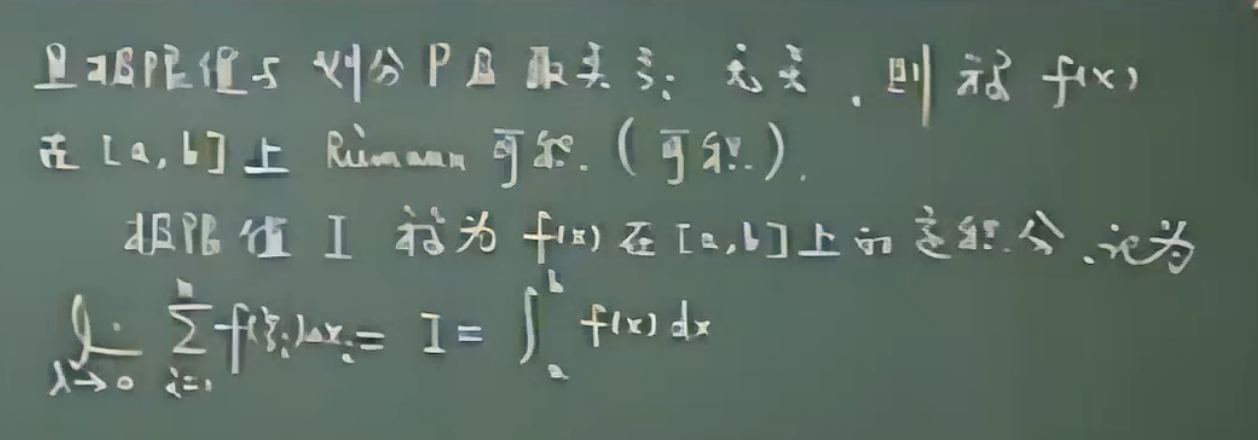 且极限值与划分 P 及取点 ξᵢ 无关，则称 f(x)
在 [a, b] 上 Riemann 可积. (可积).
极限值 I 称为 f(x) 在 [a, b] 上的定积分. 记为
lim_{λ→0} Σ_{i=1}^{n} f(ξᵢ)Δxᵢ = I = ∫_a^b f(x) dx